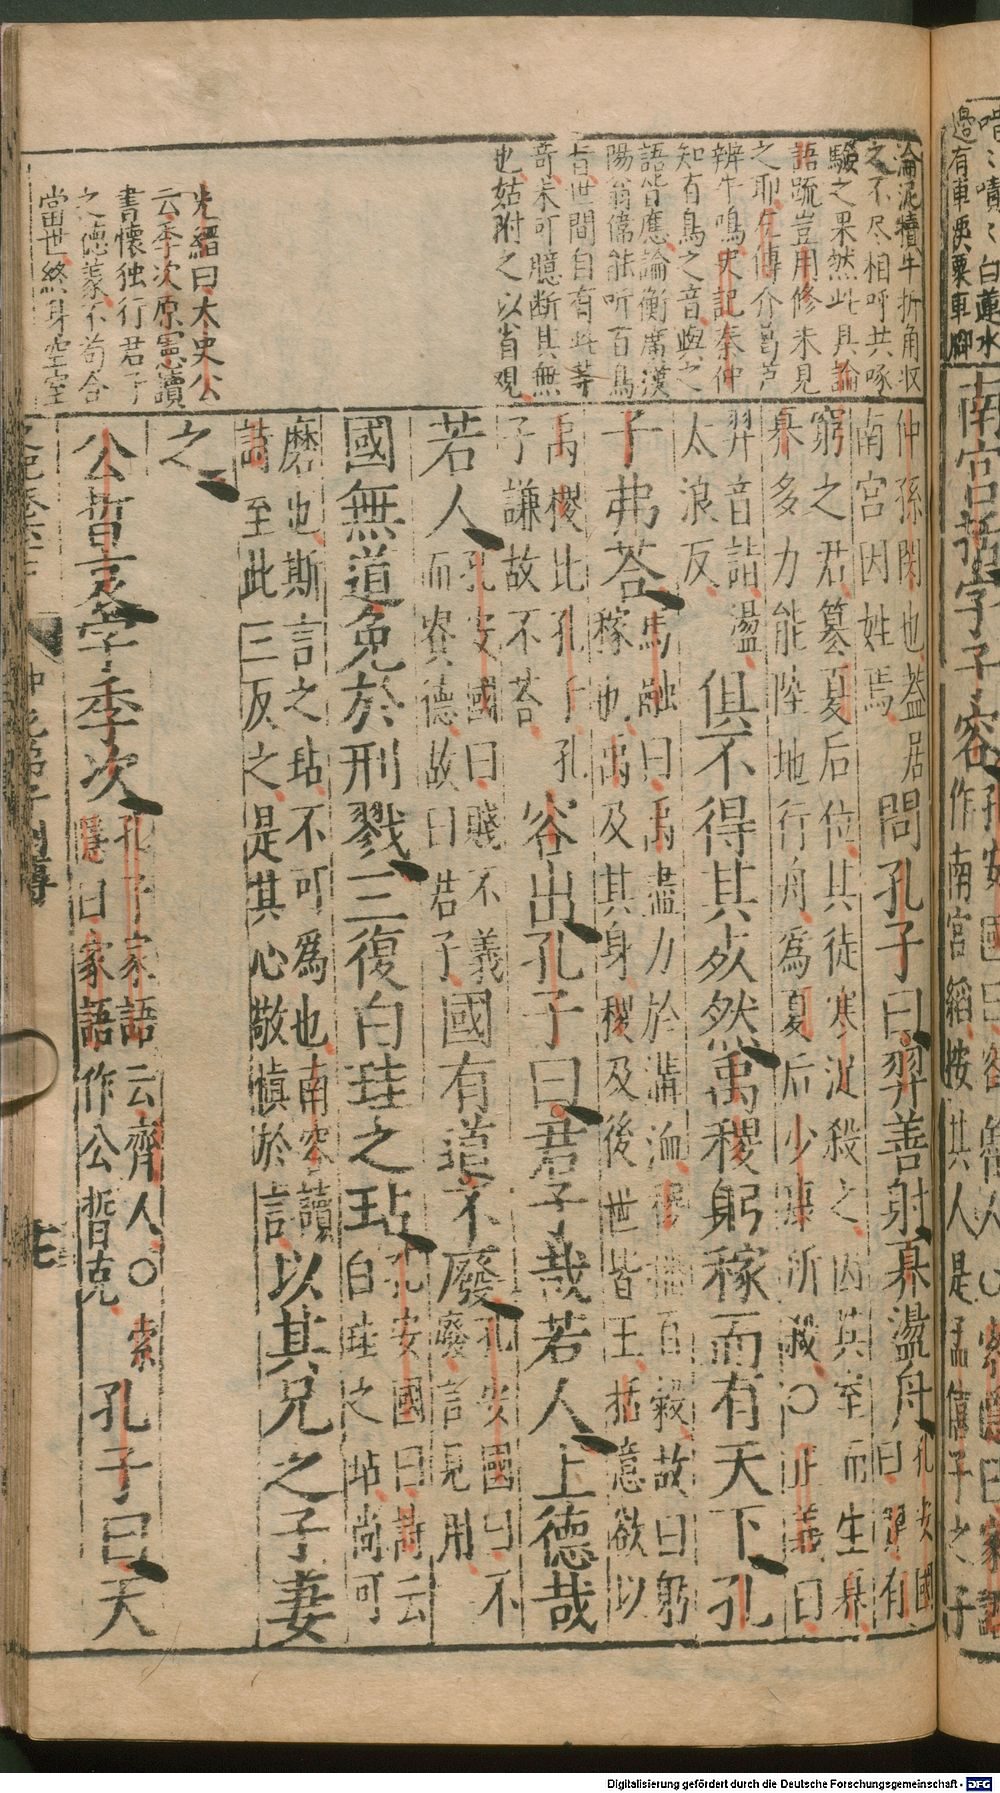 淪泥犢牛折角收
之不尽相呼共啄
驗之果然此具論
語疏豈用修未見
之耶左傳介葛芦
辨牛鳴史記秦仲
知有鳥之音與之
語皆應論衡廣漢
陽翁偉能听百鳥
旨世間自有此等
奇未可臆断其無
也姑附之以省覌
光縉曰大史公
云季次原憲讀
書懷独行君子
之德義不苟合
當世終身空室
仲孫閱也蓋居
南宮因姓焉
問孔子曰羿善射奡盪舟
孔安國
曰羿有
窮之君篡夏后位其徒寒浞殺之因其室而生奡
奡多力能陸地行舟為夏后少康所殺○正義曰
羿音詣盪
太浪反
俱不得其死然禹稷躬稼而有天下孔
子弗荅
馬融曰禹盡力於溝洫稷播百穀故曰躬
稼也禹及其身稷及後世皆王括意欲以
禹稷比孔子孔
子謙故不荅
容出孔子曰君子哉若人上德哉
若人
孔安國曰賤不義
而貴德故曰君子
國有道不廢
孔安國曰不
廢言見用
國無道免於刑戮三復白珪之玷
孔安國曰詩云
白珪之玷尚可
磨也斯言之玷不可為也南容讀
詩至此三反之是其心敬慎於言
以其兄之子妻
之
公晳哀字季次
孔子家語云齊人○索
隱曰家語作公晳克
孔子曰天
仲尼弟子列傳
啨嘖嘖白蓮水
邊有車覂粟車脚
南宮括字子容
孔安國曰容魯人○索隱曰家語
作南宮縚按其人是孟僖子之子
Digitalisierung gefördert durch die Deutsche Forschungsgemeinschaft - DFG